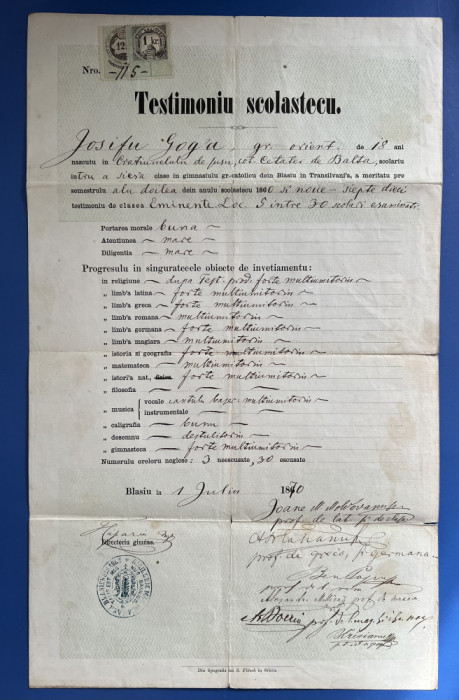 12
1 kr.
Nro. 175
Testimoniu scolastecu.
Josifu Goga, gr. orient. de 18 ani
nascutu in Cratiunelulu de susu, cot. Cetatei de Balta, scolariu
intru a siesa clase in gimnasiulu gr.-catolicu dein Blasiu in Transilvani'a, a meritatu pre
semestrulu alu doilea dein anulu scolastecu 1860 si noue - siepte dieci
testimoniu de clasea Eminente Loc. 5 intre 30 scolari esaminati
Portarea morale buna
Atentiunea mare
Diligentia mare
Progresulu in singuratecele obiecte de invetiamentu:
in religiune dupa Test. prod. forte multiumitoriu
„ limb'a latina forte multiumitoriu
„ limb'a greca forte multiumitoriu
„ limb'a romana multiumitoriu
„ limb'a germana forte multiumitoriu
„ limb'a magiara multiumitoriu
„ istoria si geografia forte multiumitoriu
„ matemateca multiumitoriu
„ istori'a nat., fisica forte multiumitoriu
„ filosofia
„ musica vocale cantulu bas. multiumitoriu
instrumentale
„ caligrafia bunu
„ desemnu destulitoriu
„ gimnasteca forte multiumitoriu
Numerulu oreloru neglese: 3 nescusate, 30 escusate
Blasiu in 1 Juliu 1870
Ioane M. Moldovanu
prof. de lat. si
prof. de grec. si germana
Directoriu gimnas.
prof. de
Din tipografia lui S. Filtsch in Sibiiu.